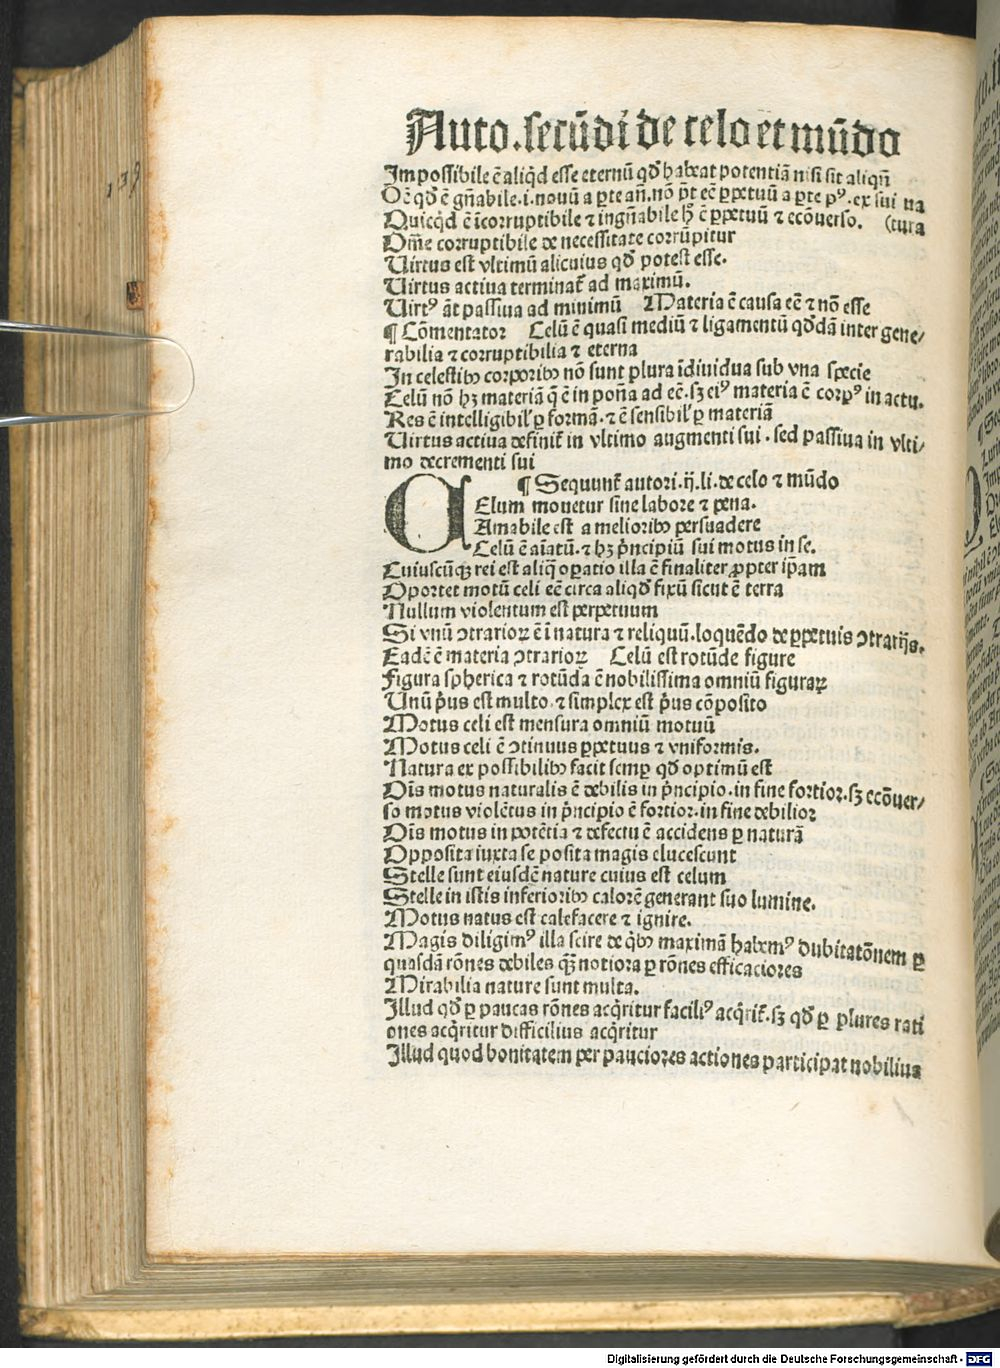 Auto.secūdi de celo et mūdo
Impossibile ē aliq̄d esse eternū qd̄ habeat potentiā nisi sit aliqn̄
Oē qd̄ ē gn̄abile.i.nouū a ꝑte an̄.nō p̄t eē ꝑpetuū a ꝑte pꝰ.ex sui na
Quicq̄d ē īcorruptibile ⁊ ingn̄abile hꝫ ē ꝑpetuū ⁊ ecōuerso. (tura
Om̄e corruptibile de necessitate corrūpitur
Uirtus est vltimū alicuius qd̄ potest esse.
Uirtus actiua terminat̄ ad maximū.
Uirtꝰ āt passiua ad minimū Materia ē causa eē ⁊ nō esse
¶ Cōmentator Celū ē quasi mediū ⁊ ligamentū qd̄dā inter gene/
rabilia ⁊ corruptibilia ⁊ eterna
In celestibꝫ corporibꝫ nō sunt plura īdiuidua sub vna specie
Celū nō hꝫ materiā q̄ ē in pon̄a ad eē.sꝫ eiꝰ materia ē corpꝰ in actu.
Res ē intelligibil' ꝑ formā.⁊ ē sensibil' ꝑ materiā
Uirtus actiua definit̄ in vltimo augmenti sui.sed passiua in vlti/
mo decrementi sui
¶ Sequunt̄ autori.ij.li.de celo ⁊ mūdo
CElum mouetur sine labore ⁊ pena.
Amabile est a melioribꝫ persuadere
Celū ē aīatū.⁊ hꝫ p̄ncipiū sui motus in se.
Cuiuscūqꝫ rei est aliq̄ oꝑatio illa ē finaliter ꝓpter ip̄am
Oportet motū celi eē circa aliqd̄ fixū sicut ē terra
Nullum violentum est perpetuum
Si vnū ↄtrarioꝝ ē ī natura ⁊ reliquū.loquēdo de ꝑpetuis ↄtrarijs.
Eadē ē materia ↄtrarioꝝ Celū est rotūde figure
Figura spherica ⁊ rotūda ē nobilissima omniū figuraꝝ
Unū p̄us est multo.⁊ simplex est p̄us cōposito
Motus celi est mensura omniū motuū
Motus celi ē ↄtinuus ꝑpetuus ⁊ vniformis.
Natura ex possibilibꝫ facit semꝑ qd̄ optimū est
Oīs motus naturalis ē debilis in p̄ncipio.in fine fortior.sꝫ ecōuer/
so motus violētus in p̄ncipio ē fortior.in fine debilior
Oīs motus in potētia ⁊ defectu ē accidens ꝑ naturā
Opposita iuxta se posita magis elucescunt
Stelle sunt eiusdē nature cuius est celum
Stelle in istis inferioribꝫ calorē generant suo lumine.
Motus natus est calefacere ⁊ ignire.
Magis diligimꝰ illa scire de q̄bꝫ maximā habemꝰ dubitatōnem ꝑ
quasdā rōnes debiles qꝫ̄ notiora ꝑ rōnes efficaciores
Mirabilia nature sunt multa.
Illud qd̄ ꝑ paucas rōnes acq̄ritur faciliꝰ acq̄rit̄.sꝫ qd̄ ꝑ plures rati
ones acq̄ritur difficilius acq̄ritur
Illud quod bonitatem per pauciores actiones participat nobilius
139
Digitalisierung gefördert durch die Deutsche Forschungsgemeinschaft - DFG